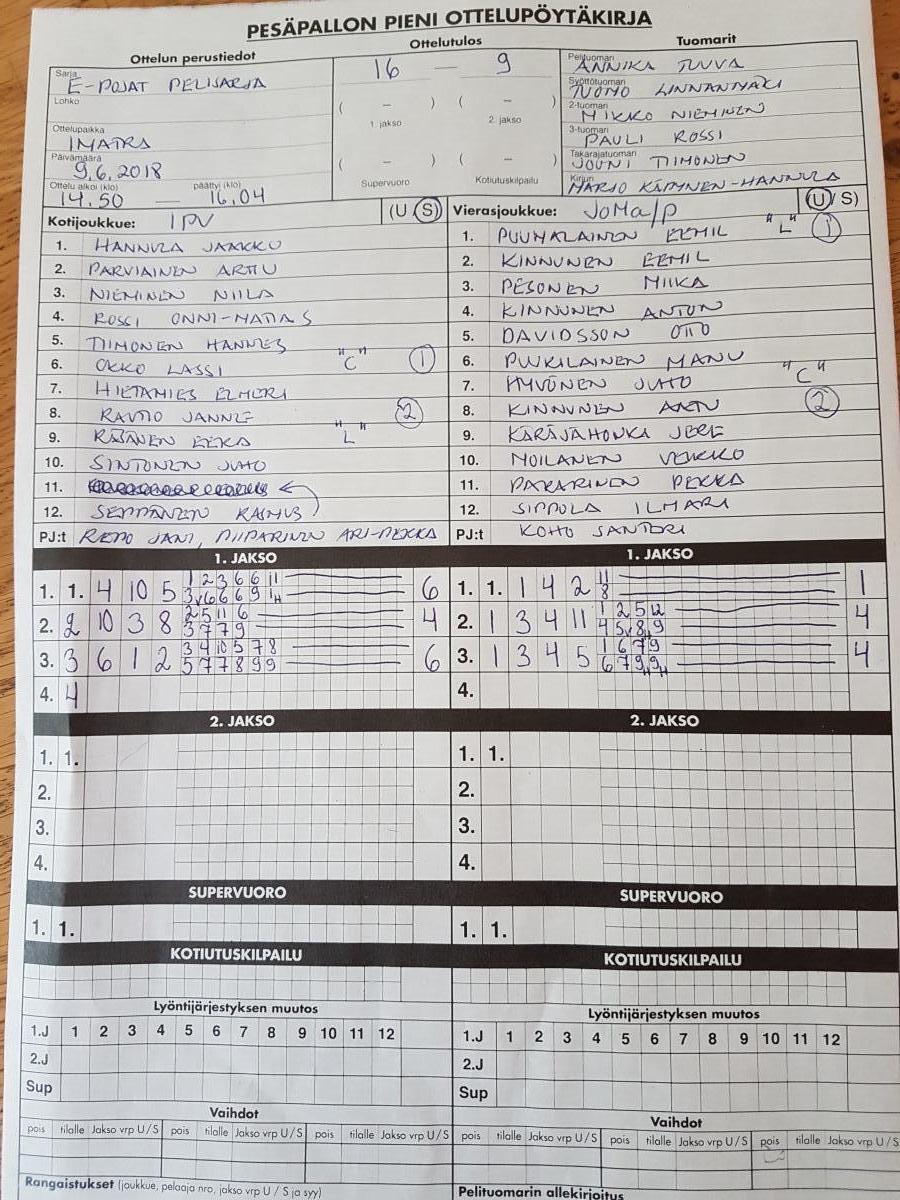 PESÄPALLON PIENI OTTELUPÖYTÄKIRJA
Ottelun perustiedot
Ottelutulos
Tuomarit
Sarja
E-POJAT PELISARJA
Lohko
Ottelupaikka
IMATRA
Päivämäärä
9.6.2018
Ottelu alkoi (klo) päättyi (klo)
14.50 — 16.04
16 — 9
( – ) ( – )
1. jakso 2. jakso
( – ) ( – )
Supervuoro Kotiutuskilpailu
Pelituomari
ANNIKA TUUVA
Syöttötuomari
TUOMO LINNANMÄKI
2-tuomari
MIKKO NIEMINEN
3-tuomari
PAULI ROSSI
Takarajatuomari
JOUNI TIIMONEN
Kirjuri
MARJO KÄPYNEN-HANNULA
Kotijoukkue: IPV (U S)
1. HANNULA JAAKKO
2. PARVIAINEN ARTTU
3. NIEMINEN NIILA
4. ROSSI ONNI-MATIAS
5. TIIMONEN HANNES
6. OKKO LASSI "C" 1
7. HIETAMIES ELMERI
8. RAUTIO JANNE 2
9. RÄSÄNEN EEKA "L"
10. SINTONEN JUHO
11.
12. SEPPÄNEN RASMUS
PJ:t REPO JANI, PIIPARINEN ARI-PEKKA
Vierasjoukkue: JoMa/p (U/S)
1. PUUMALAINEN EEMIL "L" 1
2. KINNUNEN EEMIL
3. PESONEN MIIKA
4. KINNUNEN ANTON
5. DAVIDSSON OTTO
6. PUIKILAINEN MANU
7. HYVÖNEN JUHO "C"
8. KINNUNEN ARTU 2
9. KÄRÄJÄHONKA JERE
10. MOILANEN VEIKKO
11. PAKARINEN PEKKA
12. SIPPOLA ILMARI
PJ:t KOHO SANTERI
1. JAKSO
1. 1. 4 10 5 1 2 3 6 6 11 6
3v 6 6 6 9 1H
2. 2 10 3 8 2 5 11 6 4
3 7 7 9
3. 3 6 1 2 3 4 10 5 7 8 6
5 7 7 8 9 9
4. 4
2. JAKSO
1. 1.
2.
3.
4.
SUPERVUORO
1. 1.
KOTIUTUSKILPAILU
Lyöntijärjestyksen muutos
1.J 1 2 3 4 5 6 7 8 9 10 11 12
2.J
Sup
Vaihdot
pois tilalle Jakso vrp U / S pois tilalle Jakso vrp U / S pois tilalle Jakso vrp U / S
Rangaistukset (joukkue, pelaaja nro, jakso vrp U / S ja syy)
1. JAKSO
1. 1. 1 4 2 11 1
8
2. 1 3 4 11 1 2 5 12 4
4 5v 8H 9
3. 1 3 4 5 1 6 7 9 4
6 7 9H 9H
4.
2. JAKSO
1. 1.
2.
3.
4.
SUPERVUORO
1. 1.
KOTIUTUSKILPAILU
Lyöntijärjestyksen muutos
1.J 1 2 3 4 5 6 7 8 9 10 11 12
2.J
Sup
Vaihdot
pois tilalle Jakso vrp U / S pois tilalle Jakso vrp U / S pois tilalle Jakso vrp U / S
Pelituomarin allekirjoitus